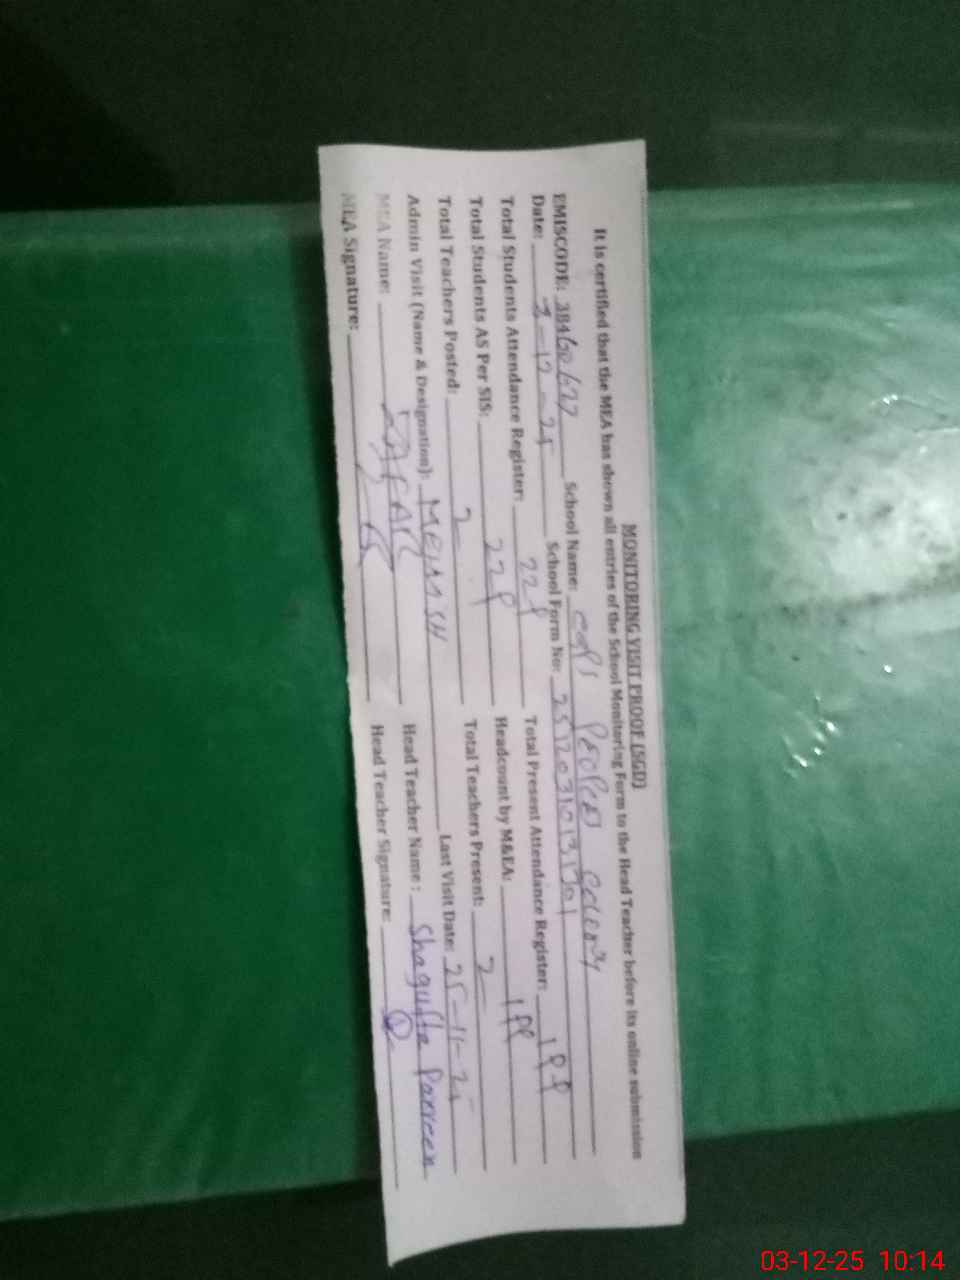 MONITORING VISIT PROOF (SGD)
It is certified that the MEA has shown all entries of the School Monitoring Form to the Head Teacher before its online submission
EMISCODE: School Name: PEOPLES COLONY
Date: 3-12-25 School Form No:
Total Students Attendance Register: Total Present Attendance Register:
Total Students AS Per SIS: Headcount by M&EA:
Total Teachers Posted: 2 Total Teachers Present: 2
Admin Visit (Name & Designation): Last Visit Date: 25-11-25
MEA Name: ZAFAR Head Teacher Name: Shagufta Parveen
MEA Signature: Head Teacher Signature:
03-12-25 10:14